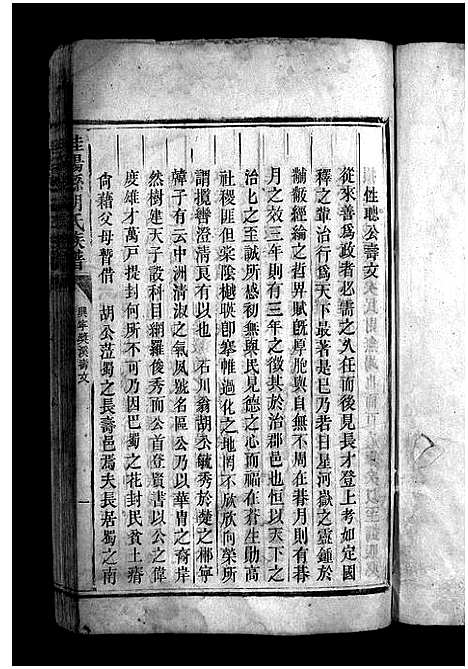 性聰公壽文
從來善為政者必需之久任而後見長才登上考如定國
釋之輩治行為天下最著是巳乃若日星河嶽之靈鍾於
黼黻經綸之哲界賦旣厚胞與自無不周在朞月則有朞
月之效三年則有三年之徵其於治郡邑也恒以天下之
治化之至誠所感初無與民見德之心而福在蒼生勛高
社稷匪但棠陰樾聯卽搴帷過化之地罔不欣欣向榮所
謂攬轡澄清良有以也 石川翁胡公毓秀於楚之郴寧
韓子有云中洲清淑之氣夙號名區公乃以華胄之裔岸
然樹建天子設科目網羅俊秀而公首登賢書以公之偉
度雄才萬戶提封何所不可乃因巴蜀之花封民貧土瘠
尙藉父母暫借 胡公蒞蜀之長壽邑焉夫長居蜀之南
桂陽縣胡氏族譜
壽文
一